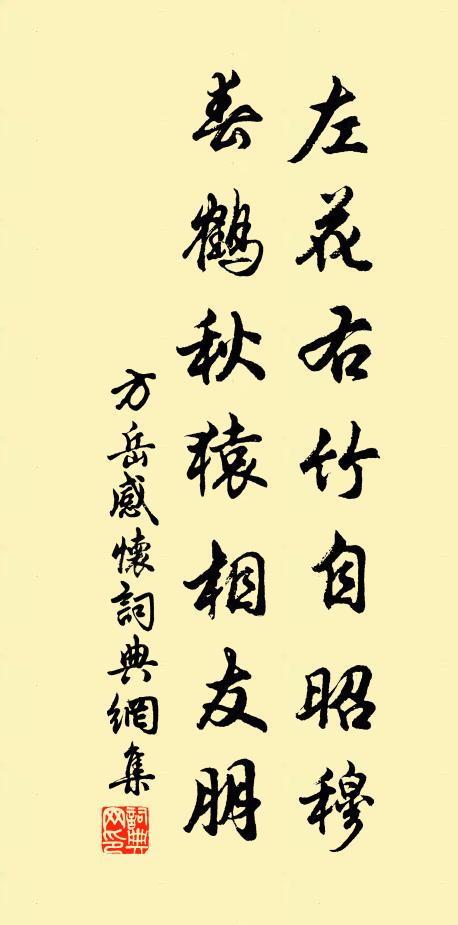 左花右竹自昭穆
春鹤秋猿相友朋
方岳感懷詞典網集
詞典網印